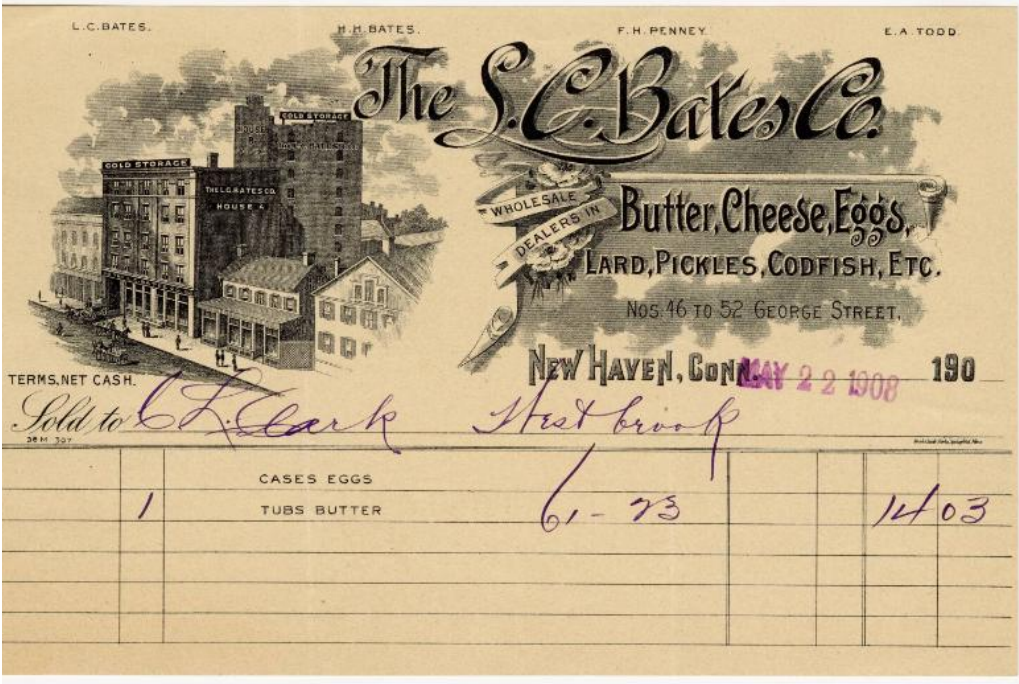 L.C. BATES. H.H. BATES. F.H. PENNEY. E.A. TODD.
The L.C. Bates Co.
COLD STORAGE
COLD STORAGE
THE L.C. BATES CO.
HOUSE 4
WHOLESALE DEALERS IN
Butter, Cheese, Eggs,
LARD, PICKLES, CODFISH, ETC.
NOS. 46 TO 52 GEORGE STREET,
NEW HAVEN, CONN. MAY 22 1908 190
TERMS, NET CASH.
Sold to C L. Clark Westbrook
38M 307
CASES EGGS
1 TUBS BUTTER 61 - 23 14 03